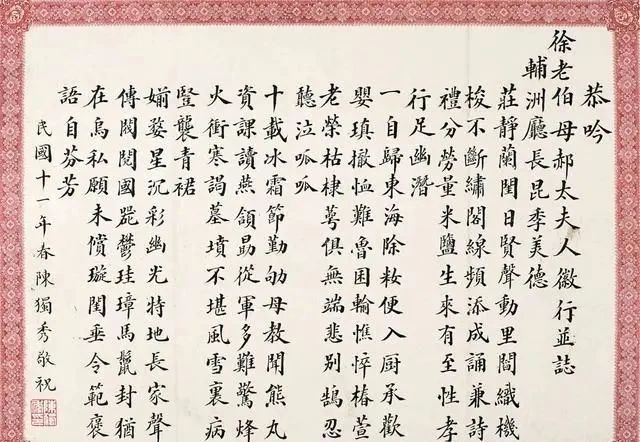 恭吟
徐老伯母郝太夫人徽行並誌
輔洲廳長昆季美德
莊靜蘭閨日賢聲動里閭織機
梭不斷繡閣線頻添成誦兼詩
禮分勞量米鹽生來有至性孝
行足幽潛
一自歸東海除籹便入厨承歡
嬰瑱撤恤難魯囷輸憔悴椿萱
老榮枯棣萼俱無端悲別鵠忍
聽泣呱呱
十載冰霜節勤劬母教聞熊丸
資課讀燕頷勗從軍多難驚烽
火衝寒謁墓墳不堪風雪裏病
豎襲青裙
婻婺星沉彩幽光特地長家聲
傳閥閱國器鬱珪璋馬鬣封猶
在烏私願未償璇閨垂令範褒
語自芬芳
民國十一年春陳獨秀敬祝